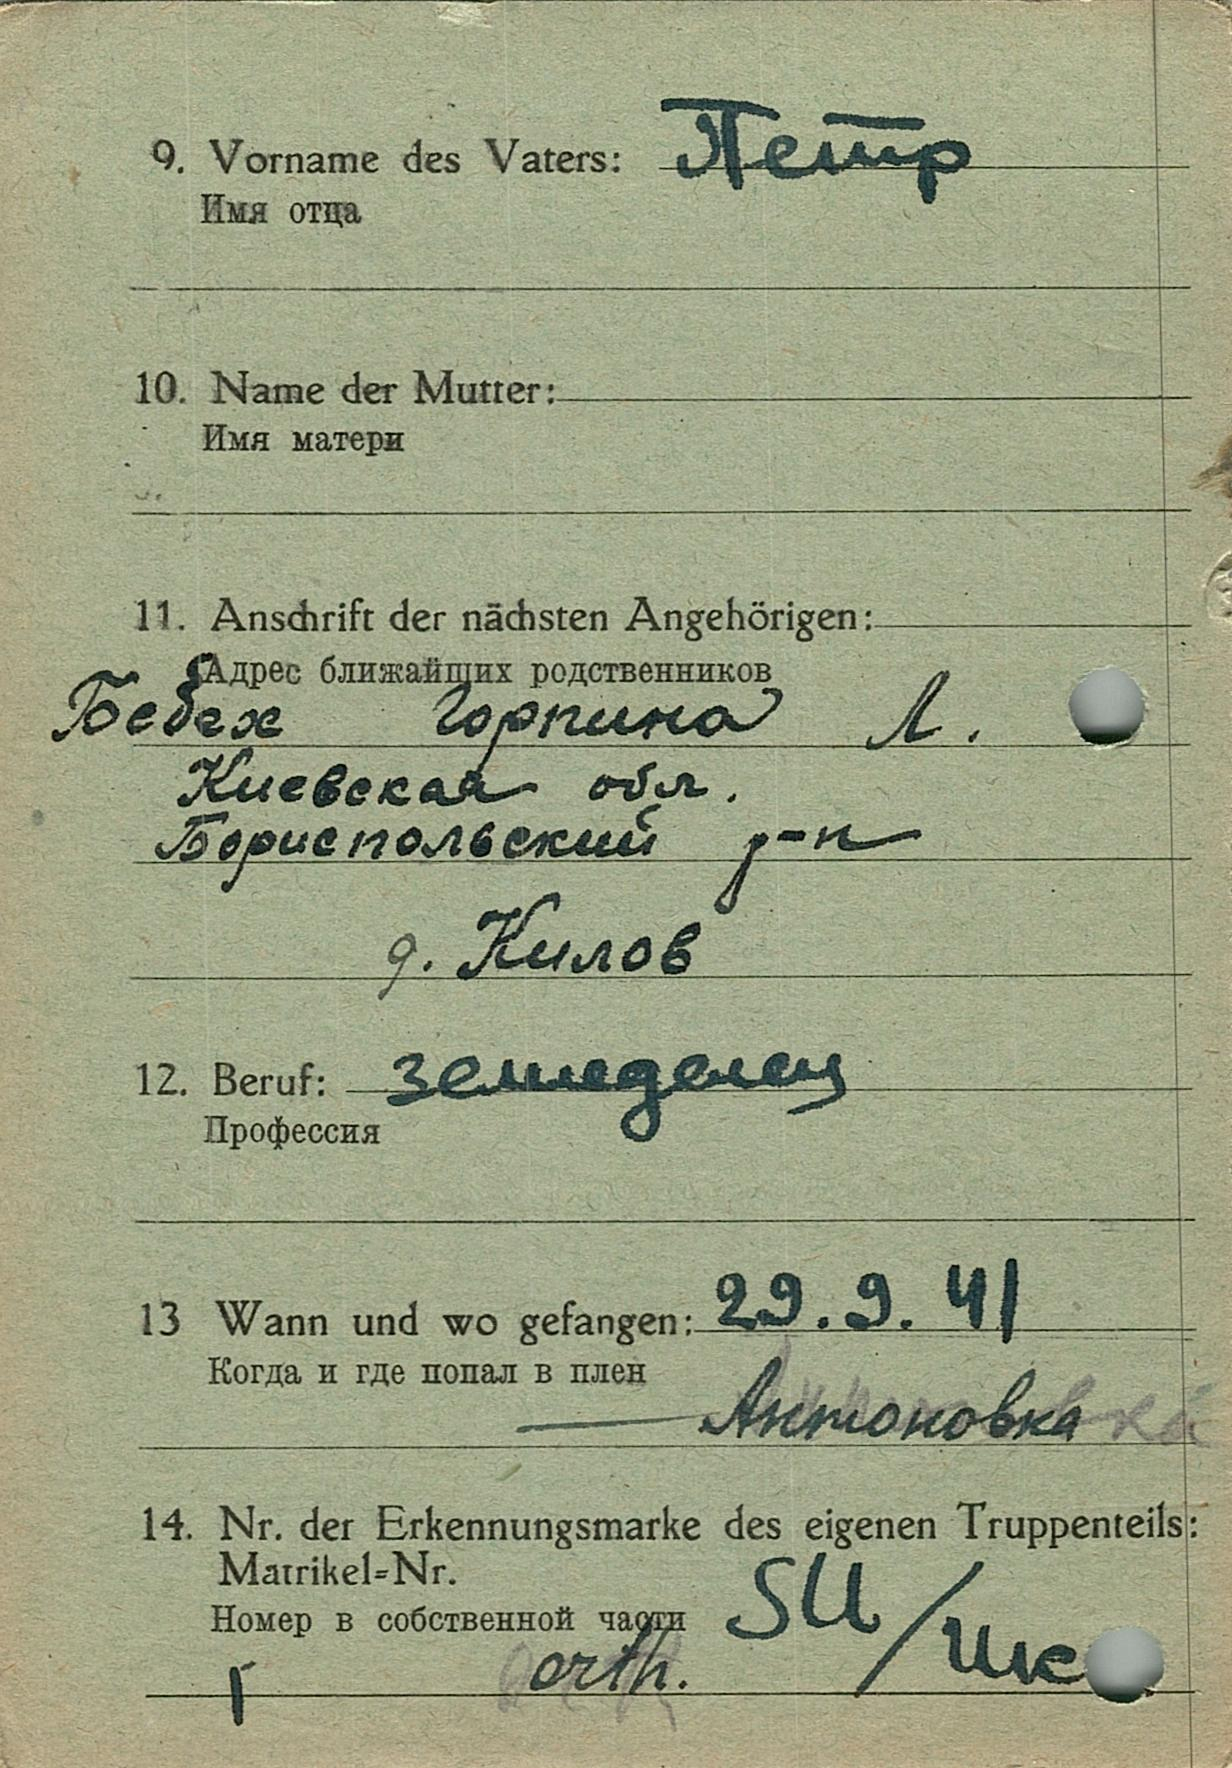 9. Vorname des Vaters: Петр
Имя отца
10. Name der Mutter:
Имя матери
11. Anschrift der nächsten Angehörigen:
Адрес ближайших родственников
Бебех Горпина Л.
Киевская обл.
Бориспольский р-н
д. Килов
12. Beruf: земледелец
Профессия
13 Wann und wo gefangen: 29.9.41
Когда и где попал в плен
Антоновка
14. Nr. der Erkennungsmarke des eigenen Truppenteils:
Matrikel=Nr.
Номер в собственной части SU/Uk
orth.